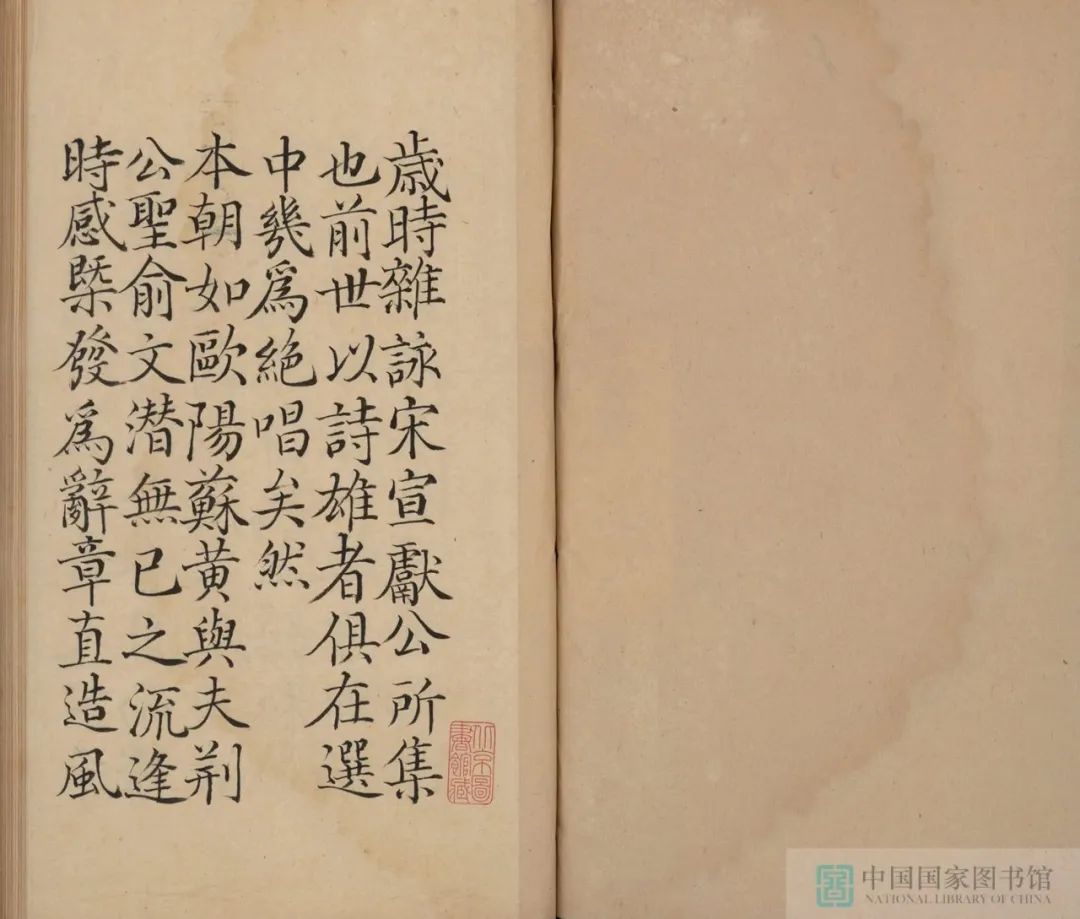 歲時雜詠宋宣獻公所集
也前世以詩雄者俱在選
中幾爲絕唱矣然
本朝如歐陽蘇黃與夫荆
公聖俞文潛無已之流逢
時感槩發爲辭章直造風
北京圖書館藏
中国国家图书馆
NATIONAL LIBRARY OF CHINA